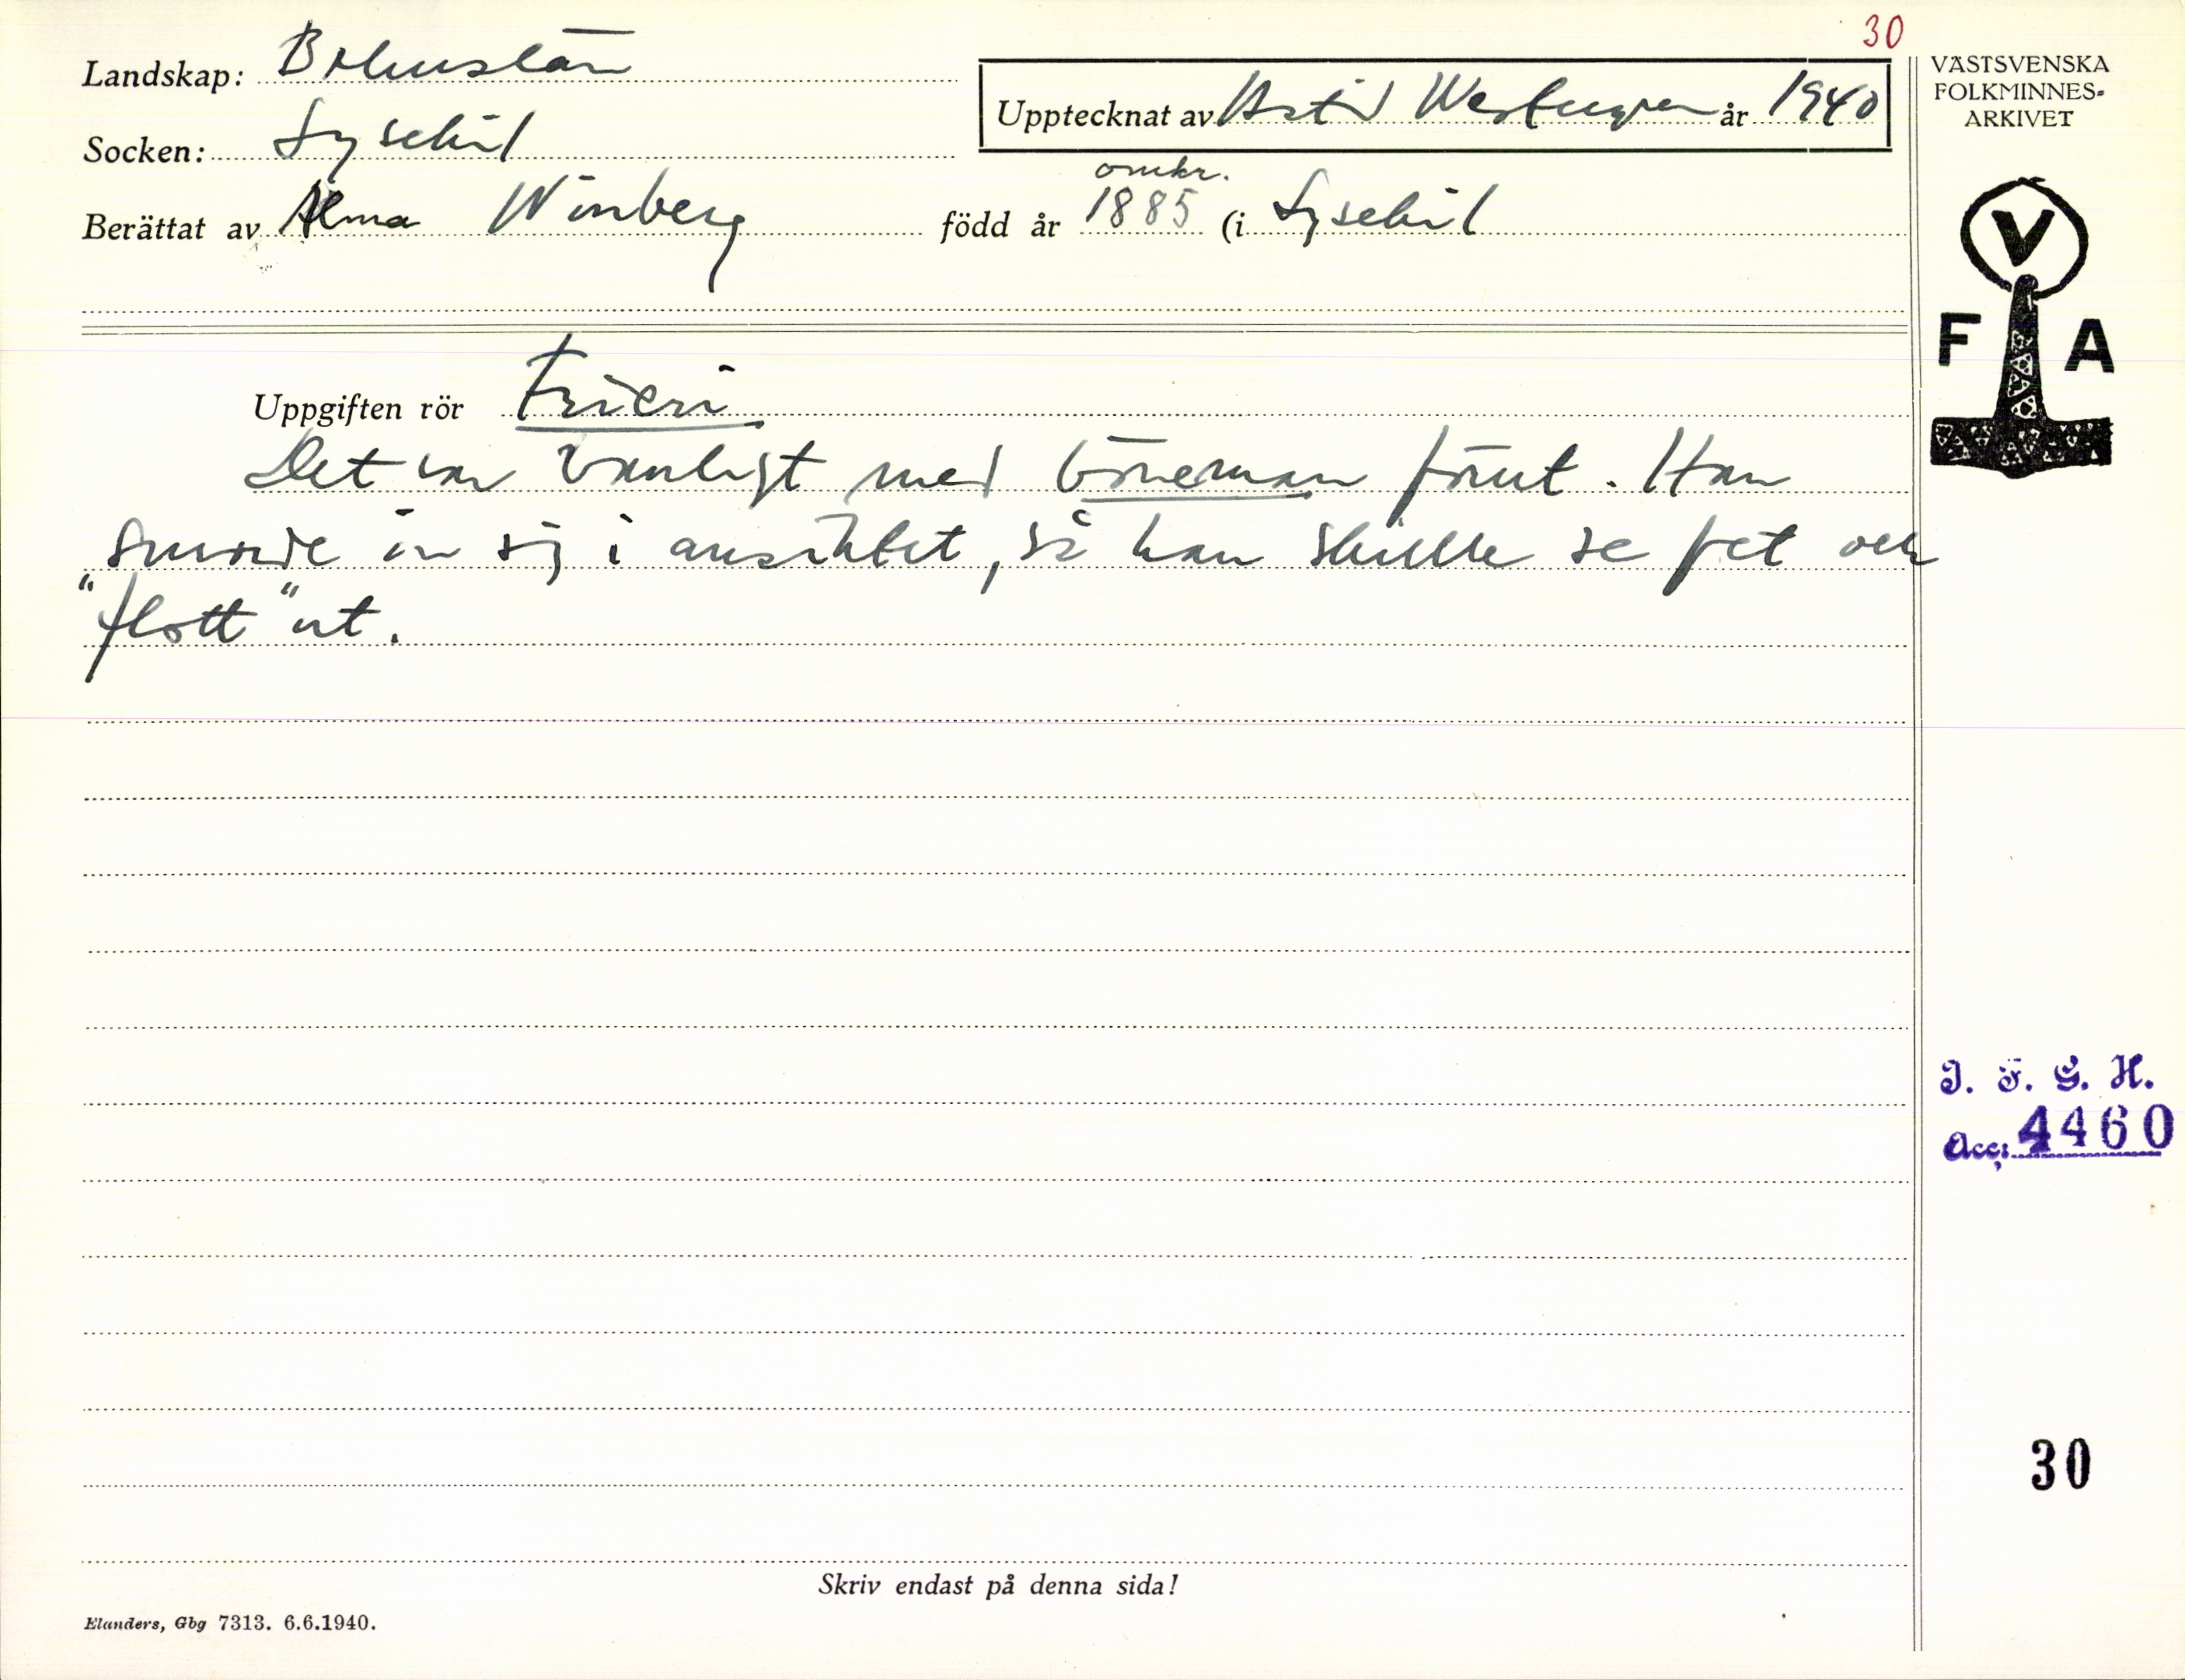 30
Landskap: Bohuslän
Upptecknat av Astrid Westergren år 1940
VÄSTSVENSKA
FOLKMINNES-
ARKIVET
Socken: Lysekil
omkr.
Berättat av Alma Winberg född år 1885 (i Lysekil
V
F A
Uppgiften rör Frieri
Det var vanligt med böneman förut. Han
smorde in sig i ansiktet, så han skulle se fet och
"flott" ut.
I. F. G. H.
Acc: 4460
30
Skriv endast på denna sida!
Elanders, Gbg 7313. 6.6.1940.